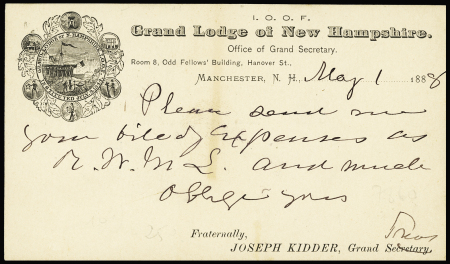 I. O. O. F.
Grand Lodge of New Hampshire.
Office of Grand Secretary.
Room 8, Odd Fellows' Building, Hanover St.,
MANCHESTER, N. H., May 1 1888
Please send me
your bill of Expenses as
R. W. M L. and much
oblige yours
Fraternally,
Treas
JOSEPH KIDDER, Grand Secretary.